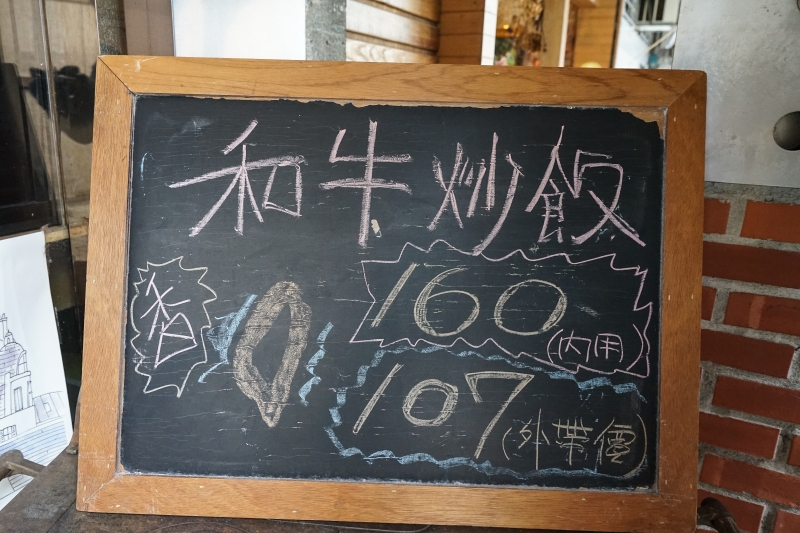 和牛炒飯
香
160
(内用)
107
(外帶價)